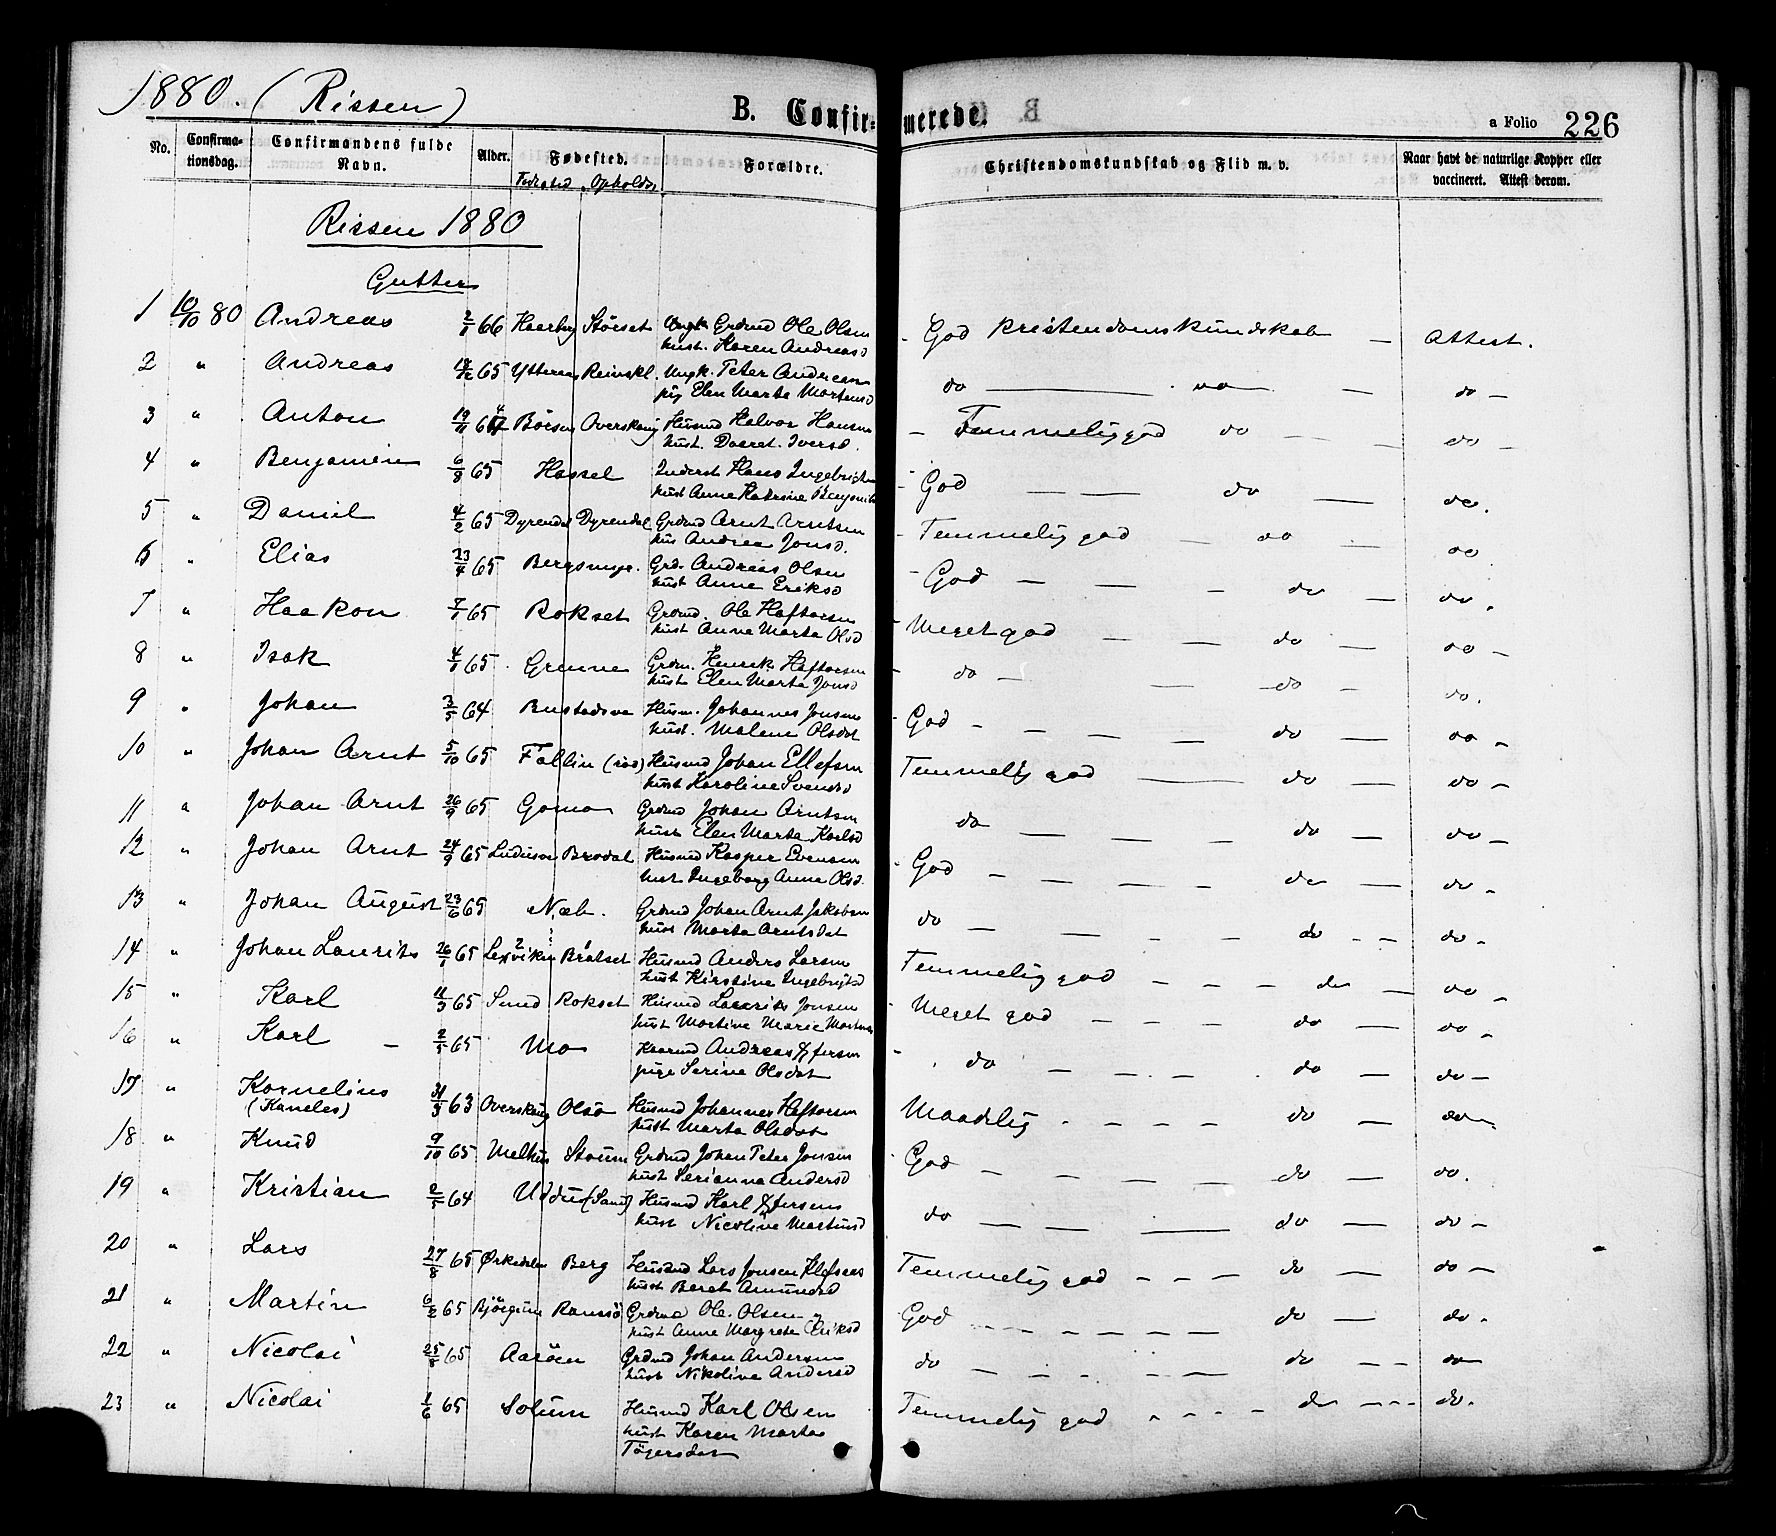 1880. (Rissen)
B. Confirmerede.
a Folio 226
No. Confirmationsdag. Confirmandens fulde Navn. Alder. Fødested. Forældre. Christendomskundskab og Flid m. v. Naar havt de naturlige Kopper eller vaccineret. Attest derom.
Fødested Opholds
Rissen 1880
Gutter
1 10/10 80 Andreas 2/1 66 Haarberg Störset Ungk Grdmd Ole Olsen God Kristendomskundskab — Attest.
hust. Karen Andreasd
2 " Andreas 65 Ytteren Reinskl. Ungk. Peter Andreasen do — do — do —
pig Elen Marta Mortensd
3 " Anton 19/11 64 Börsen Overskaug Husmd Halvor Hansen Temmelig god do — do —
hust. Daaret Iversd.
4 " Benjamin 6/8 65 Hassel Inderst Hans Ingebrigtsen God — do — do.
hust Anne Katrine Benjamins
5 " Daniel 4/2 65 Dyrendal Dyrendal Grdmd Arnt Arntsen Temmelig god — do — do
hus Andrea Jonsd.
6 " Elias 23/4 65 Bergsmyr. Grd. Andreas Olsen God — do — do.
hust Anne Eriksd
7 " Haakon 7/1 65 Rokset Grdmd. Ole Haftorsen Meget god — do — do —
hust Anna Marta Olsd
8 " Isak 4/1 65 Grenne Grdm. Henrik Haftorsen do — do — do.
hust Elen Marta Jonsd
9 " Johan 3/5 64 Bustadsve Husm. Johannes Jonsen God — do — do —
hust. Malene Olsdat
10 " Johan Arnt 5/10 65 Fallin (rød) Husmd Johan Ellefsen Temmelig god — do — do —
hust Karoline Svendsd
11 " Johan Arnt 26/9 65 Gomo Grdmd Johan Arntsen do — do — do —
hust Elen Marta Karlsd
12 " Johan Arnt 24/9 65 Brødal Husmd Kasper Evensen God — do — do —
hust Ingeborg Anna Olsd.
13 " Johan August 23/6 65 Næb. Grdmd Johan Arnt Jakobsen do — do — do —
hust Marta Arntsdat
14 " Johan Laurits 26/1 65 Lexviken Bråtset Husmd Anders Larsen Temmelig god — do — do —
hust Kirstine Ingebrigtsd
15 " Karl 11/3 65 Sund Rokset Husmd Laurits Jonsen Meget god — do — do —
hust Martine Marie Martines
16 " Karl — 2/5 65 Mo Kaarmd Andreas Xfersen do — do — do —
pige Serine Olsdat
17 " Kornelius 31/3 63 Overskaug Olsø Husmd Johannes Haftorsen Maadelig — do — do
(Kaneles) hust Marta Olsdat
18 " Knud 9/10 65 Melhus Staum Grdmd Johan Peter Jonsen God — do — do.
hust Serianna Andersd
19 " Kristian 2/5 64 Uddu (Sand) Husmd Karl Xfersen do — do — do —
hust Nicoline Martinsd
20 " Lars 27/8 65 Ørkedalen Berg Husmd Lars Jonsen Klefsaas Temmelig god — do — do —
hust Beret Amundsd
21 " Martin 6/2 65 Bjørgum Ramsö Grdmd Ole Olsen God — do — do.
hust Anne Margrete Eriksd
22 " Nicolai 25/8 65 Aasöen Grdmd Johan Andersen do — do — do
hust Nikoline Andersd
23 " Nicolai 1/6 65 Solum Husmd Karl Olsen Temmelig god — do — do.
hust Karen Marta
Tøgersdat